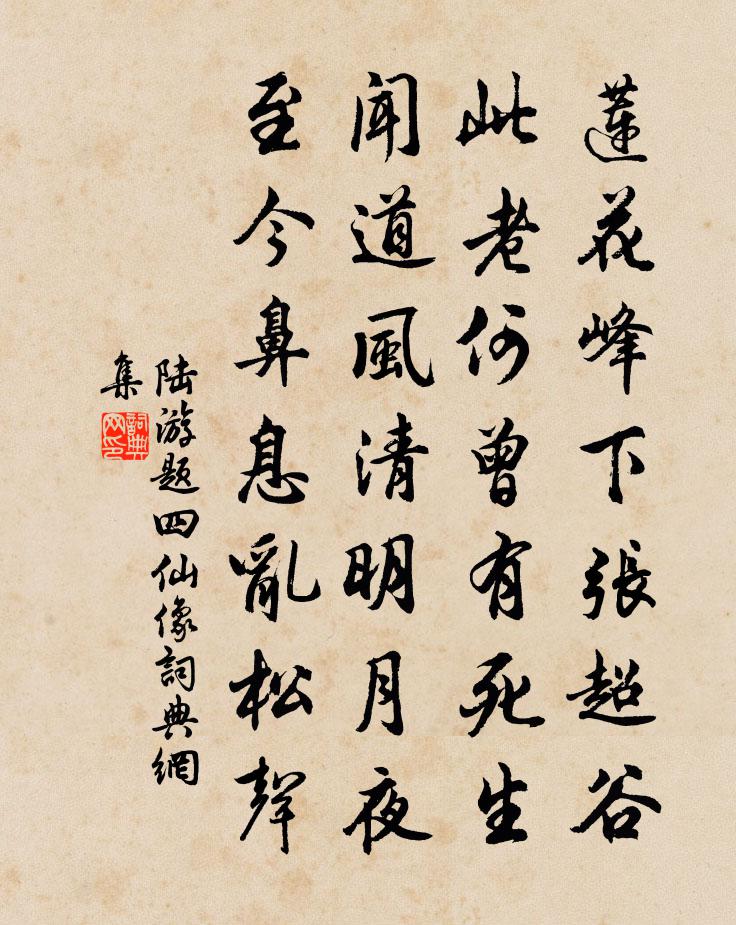 蓮花峰下張超谷
此老何曾有死生
聞道風清明月夜
至今鼻息亂松聲
陸游題四仙像詞典網
集
詞典
网印